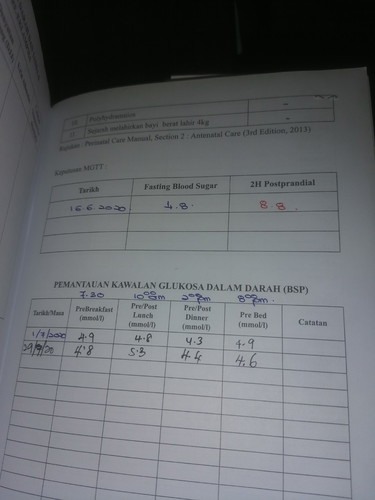 10 Polyhydramnios -
11 Sejarah melahirkan bayi berat lahir 4kg -
Rujukan : Perinatal Care Manual, Section 2 : Antenatal Care (3rd Edition, 2013)
Keputusan MGTT :
Tarikh Fasting Blood Sugar 2H Postprandial
16.6.2020 4.8. 8.8.
PEMANTAUAN KAWALAN GLUKOSA DALAM DARAH (BSP)
7.30 10 00 am 3 00 pm 8 00 pm.
Tarikh/Masa PreBreakfast (mmol/l) Pre/Post Lunch (mmol/l) Pre/Post Dinner (mmol/l) Pre Bed (mmol/l) Catatan
1/7/2020 4.9 4.8 4.3 4.9
4.8 5.3 4.4 4.6